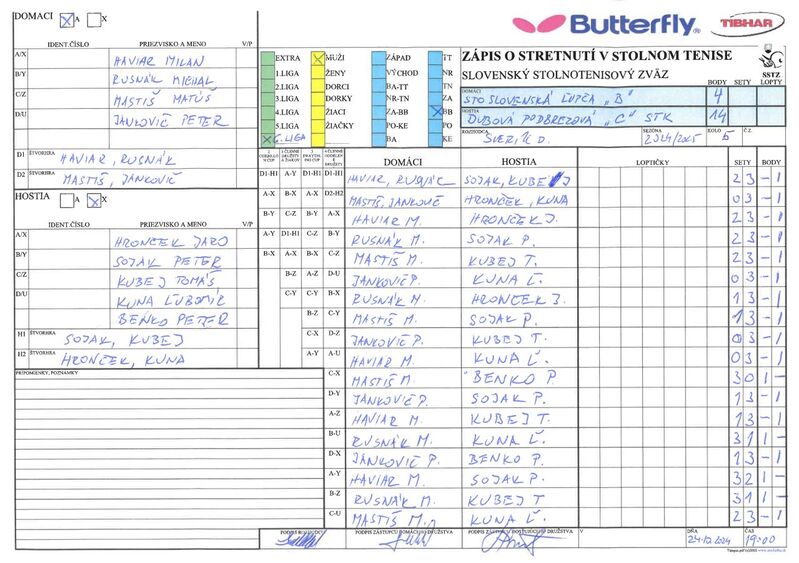 DOMACI X A X
IDENT.ČÍSLO PRIEZVISKO A MENO V/P
A/X HAVIAR MILAN
B/Y RUSNÁK MICHAL
C/Z MASTIŠ MATÚŠ
D/U JANKOVIČ PETER
D1 ŠTVORHRA HAVIAR, RUSNÁK
D2 ŠTVORHRA MASTIŠ, JÁNKOVIČ
HOSTIA A X X
IDENT.ČÍSLO PRIEZVISKO A MENO V/P
A/X HRONČEK JARO
B/Y SOJAK PETER
C/Z KUBEJ TOMÁŠ
D/U KUNA ĽUBOMÍR
BEŇKO PETER
H1 ŠTVORHRA SOJAK, KUBEJ
H2 ŠTVORHRA HRONČEK, KUNA
PRIPOMIENKY, POZNÁMKY
Butterfly TIBHAR
EXTRA X MUŽI ZÁPAD TT
1.LIGA ŽENY VÝCHOD NR
2.LIGA DORCI BA-TT TN
3.LIGA DORKY NR-TN ZA
4.LIGA ŽIACI ZA-BB X BB
5.LIGA ŽIAČKY PO-KE PO
X 6.LIGA BA KE
ZÁPIS O STRETNUTÍ V STOLNOM TENISE
SLOVENSKÝ STOLNOTENISOVÝ ZVÄZ
SSTZ
BODY SETY LOPTY
DOMÁCI STO SLOVENSKÁ ĽUPČA „B" 4
HOSTIA DUBOVÁ PODBREZOVÁ „C" STK 14
ROZHODCA SEZÓNA 2024/2025 KOLO
DOMÁCI HOSTIA LOPTIČKY SETY BODY
D1-H1 A-Y D1-H1 D1-H1 HAVIAR, RUSNÁK SOJAK, KUBEJ 2 3 - 1
A-X B-X A-X D2-H2 MASTIŠ, JÁNKOVIČ HRONČEK, KUNA 0 3 - 1
B-Y C-Z B-Y A-X HAVIAR M. HRONČEK J. 2 3 - 1
A-Y D1-H1 C-Z B-Y RUSNÁK M. SOJAK P. 2 3 - 1
B-X A-X B-X C-Z MASTIŠ M. KUBEJ T. 2 3 - 1
B-Z A-Z D-U JÁNKOVIČ P. KUNA Ľ. 0 3 - 1
C-Y C-Y B-X RUSNÁK M. HRONČEK J. 1 3 - 1
B-Z C-Y MASTIŠ M. SOJAK P. 1 3 - 1
C-X D-Z JÁNKOVIČ P. KUBEJ T. 0 3 - 1
A-Y A-U HAVIAR M. KUNA Ľ. 0 3 - 1
C-X MASTIŠ M. BENKO P. 3 0 1 -
D-Y JÁNKOVIČ P. SOJAK P. 1 3 - 1
A-Z HAVIAR M. KUBEJ T. 1 3 - 1
B-U RUSNÁK M. KUNA Ľ. 3 1 1 -
D-X JÁNKOVIČ P. BENKO P. 1 3 - 1
A-Y HAVIAR M. SOJAK P. 3 2 1 -
B-Z RUSNÁK M. KUBEJ T 3 1 1 -
C-U MASTIŠ M. KUNA Ľ. 2 3 - 1
PODPIS ROZHODCU PODPIS ZÁSTUPCU DOMÁCEHO DRUŽSTVA PODPIS ZÁSTUPCU HOSŤUJÚCEHO DRUŽSTVA V DŇA ČAS
24.10.2024 19:00